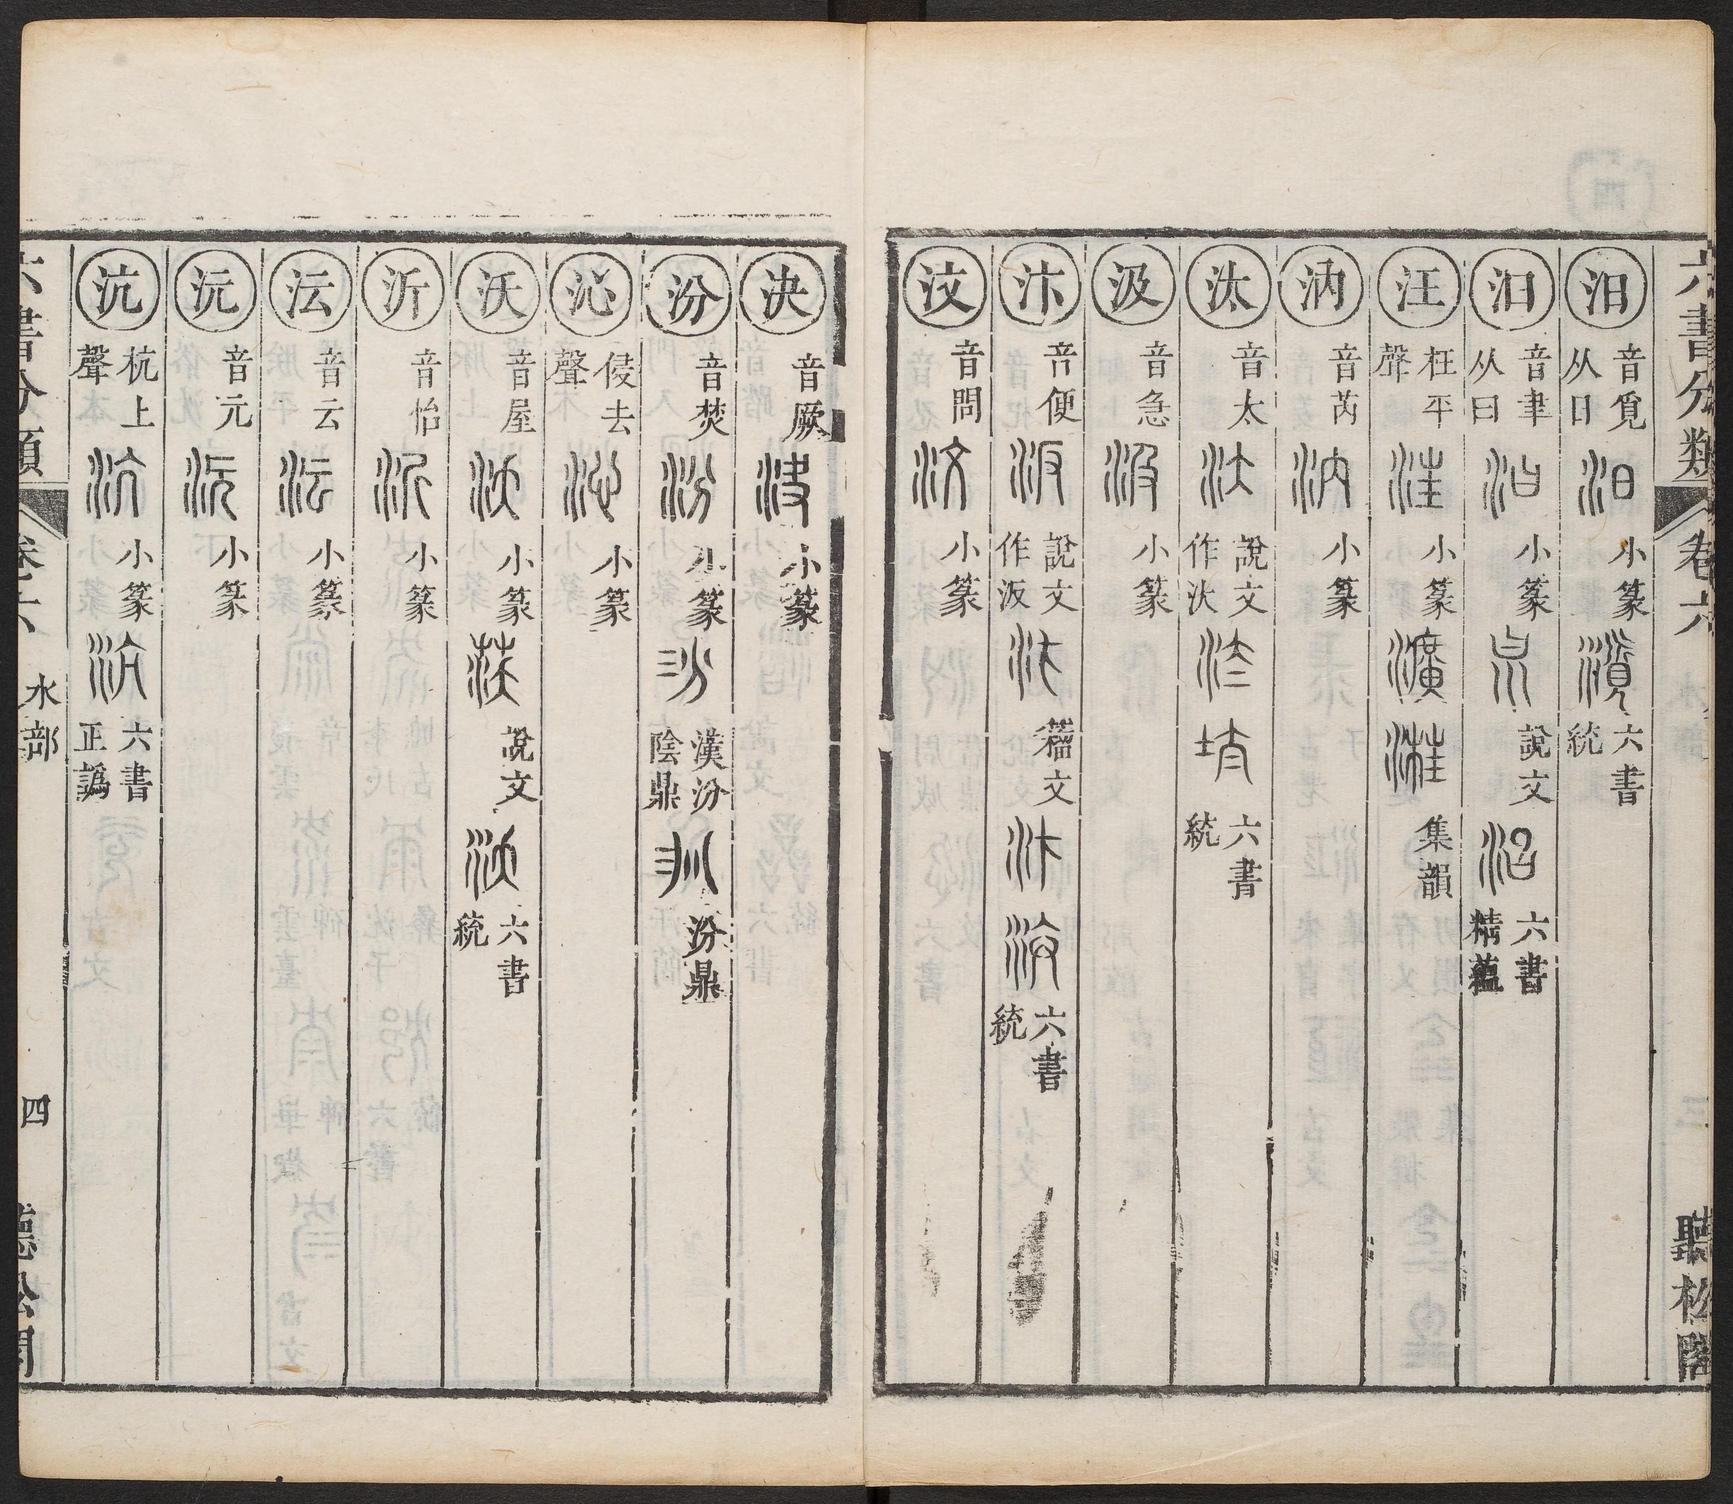 六書分類 卷六 聽松閣
汨 音覓 从日 小篆 六書統
汩 音聿 从曰 小篆 說文 六書精蘊
汪 枉平聲 小篆 集韻
汭 音芮 小篆
汰 音太 說文作汏 六書統
汲 音急 小篆
汴 音便 說文作汳 籀文 六書統
汶 音問 小篆
決 音厥 小篆
汾 音焚 小篆 漢汾陰鼎 汾鼎
沁 侵去聲 小篆
沃 音屋 小篆 說文 六書統
沂 音怡 小篆
沄 音云 小篆
沅 音元 小篆
沆 杭上聲 小篆 六書正譌
六書分類 卷六 水部 四 聽松閣